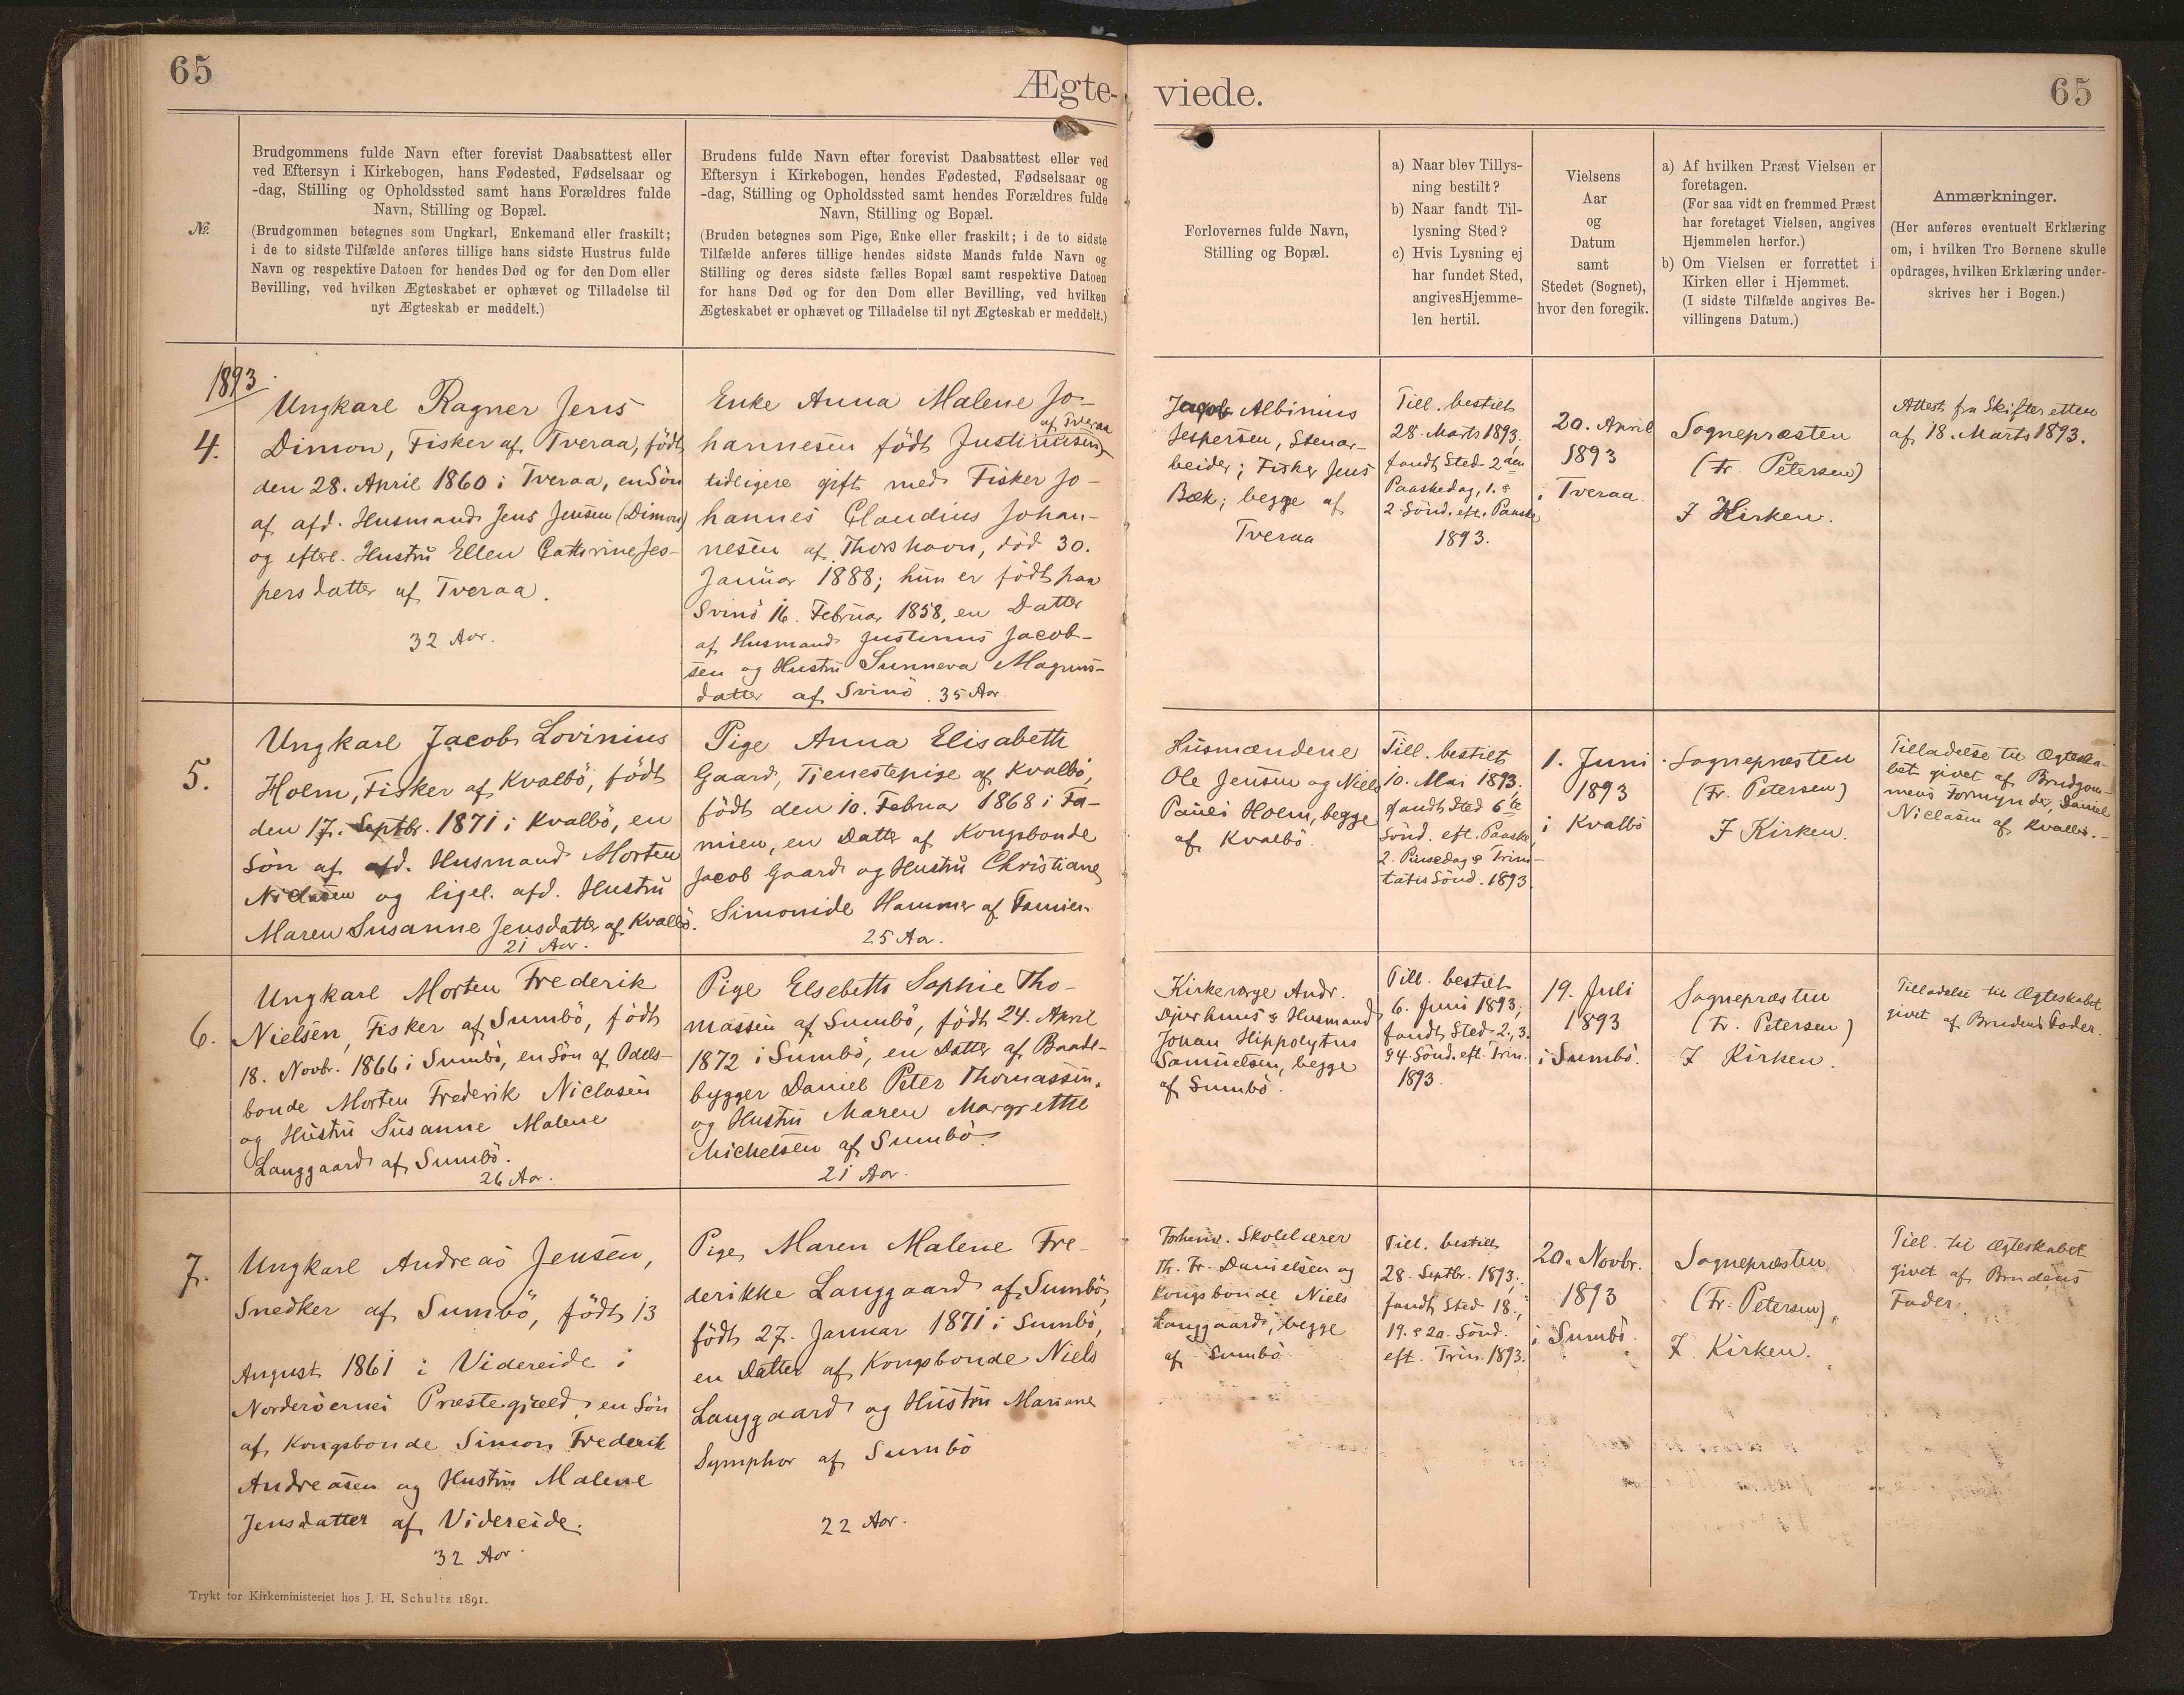 65
Ægte-
viede.
65
№.
Brudgommens fulde Navn efter forevist Daabsattest eller
ved Eftersyn i Kirkebogen, hans Fødested, Fødselsaar og
-dag, Stilling og Opholdssted samt hans Forældres fulde
Navn, Stilling og Bopæl.
(Brudgommen betegnes som Ungkarl, Enkemand eller fraskilt;
i de to sidste Tilfælde anføres tillige hans sidste Hustrus fulde
Navn og respektive Datoen for hendes Død og for den Dom eller
Bevilling, ved hvilken Ægteskabet er ophævet og Tilladelse til
nyt Ægteskab er meddelt.)
Brudens fulde Navn efter forevist Daabsattest eller ved
Eftersyn i Kirkebogen, hendes Fødested, Fødselsaar og
-dag, Stilling og Opholdssted samt hendes Forældres fulde
Navn, Stilling og Bopæl.
(Bruden betegnes som Pige, Enke eller fraskilt; i de to sidste
Tilfælde anføres tillige hendes sidste Mands fulde Navn og
Stilling og deres sidste fælles Bopæl samt respektive Datoen
for hans Død og for den Dom eller Bevilling, ved hvilken
Ægteskabet er ophævet og Tilladelse til nyt Ægteskab er meddelt.)
Forlovernes fulde Navn,
Stilling og Bopæl.
a) Naar blev Tillys-
ning bestilt?
b) Naar fandt Til-
lysning Sted?
c) Hvis Lysning ej
har fundet Sted,
angivesHjemme-
len hertil.
Vielsens
Aar
og
Datum
samt
Stedet (Sognet),
hvor den foregik.
a) Af hvilken Præst Vielsen er
foretagen.
(For saa vidt en fremmed Præst
har foretaget Vielsen, angives
Hjemmelen herfor.)
b) Om Vielsen er forrettet i
Kirken eller i Hjemmet.
(I sidste Tilfælde angives Be-
villingens Datum.)
Anmærkninger.
(Her anføres eventuelt Erklæring
om, i hvilken Tro Børnene skulle
opdrages, hvilken Erklæring under-
skrives her i Bogen.)
1893
4.
Ungkarl Ragner Jens
Dimon, Fisker af Tveraa, født
den 28. April 1860 i Tveraa, en Søn
af afd. Husmand Jens Jensen (Dimon)
og efterl. Hustru Ellen Cathrine Jes-
persdatter af Tveraa.
32 Aar.
Enke Anna Malene Jo-
af Tveraa
hannesen født Justinussen,
tidligere gift med Fisker Jo-
hannes Claudius Johan-
nesen af Thorshavn, død 30.
Januar 1888; hun er født paa
Svinö 16. Februar 1858, en Datter
af Husmand Justinus Jacob-
sen og Hustru Sunneva Magnus-
datter af Svinö. 35 Aar.
Jacob Albinius
Jespersen, Stenar-
beider; Fisker Jens
Bæk; begge af
Tveraa
Till. bestilt
28. Marts 1893,
fandt Sted 2den
Paaskedag, 1. &
2. Sönd. eft. Paaske
1893.
20. April
1893
i Tveraa.
Sognepræsten
(Fr. Petersen)
I Kirken.
Attest fra Skifteretten
af 18. Marts 1893.
5.
Ungkarl Jacob Lovinius
Holm, Fisker af Kvalbö, født
den 17. Septbr. 1871 i Kvalbö, en
Søn af afd. Husmand Morten
Niclasen og ligel. afd. Hustru
Maren Susanne Jensdatter af Kvalbö.
21 Aar.
Pige Anna Elisabeth
Gaard, Tjenestepige af Kvalbö,
født den 10. Februar 1868 i Fa-
mien, en Datter af Kongsbonde
Jacob Gaard og Hustru Christiane
Simonide Hammer af Famien.
25 Aar.
Husmændene
Ole Jensen og Niels
Pauli Holm, begge
af Kvalbö.
Till. bestilt
10. Mai 1893,
fandt Sted 6te
Sönd. eft. Paaske,
2. Pinsedag & Trini-
tatis Sönd. 1893.
1. Juni
1893
i Kvalbö
Sognepræsten
(Fr. Petersen)
I Kirken.
Tilladelse til Ægteska-
bet givet af Brudgom-
mens Formynder, Daniel
Niclasen af Kvalbö.
6.
Ungkarl Morten Frederik
Nielsen, Fisker af Sumbö, født
18. Novbr. 1866 i Sumbö, en Søn af Odels-
bonde Morten Frederik Niclasen
og Hustru Susanne Malene
Langgaard af Sumbö.
26 Aar.
Pige Elsebeth Sophie Tho-
massen af Sumbö, født 24. April
1872 i Sumbö, en Datter af Baad-
bygger Daniel Peter Thomassen
og Hustru Maren Margrethe
Michelsen af Sumbö.
21 Aar.
Kirkeværge Andr.
Djurhuus & Husmand
Johan Hippolytus
Samuelsen, begge
af Sumbö.
Till. bestilt
6. Juni 1893,
fandt Sted 2., 3.
& 4. Sönd. eft. Trin.
1893.
19. Juli
1893
i Sumbö.
Sognepræsten
(Fr. Petersen)
I Kirken.
Tilladelse til Ægteskabet
givet af Brudens Fader.
7.
Ungkarl Andreas Jensen,
Snedker af Sumbö, født 13
August 1861 i Videreide i
Norderöernes Præstegjæld, en Søn
af Kongsbonde Simon Frederik
Andreasen og Hustru Malene
Jensdatter af Videreide.
32 Aar.
Pige Maren Malene Fre-
derikke Langgaard af Sumbö,
født 27. Januar 1871 i Sumbö,
en Datter af Kongsbonde Niels
Langgaard og Hustru Mariane
Symphor af Sumbö
22 Aar.
Forhenv. Skolelærer
Th. Fr. Danielsen og
Kongsbonde Niels
Langgaard, begge
af Sumbö.
Till. bestilt
28. Septbr. 1893,
fandt Sted 18.,
19. & 20. Sönd.
eft. Trin. 1893.
20. Novbr.
1893
i Sumbö.
Sognepræsten
(Fr. Petersen),
I Kirken.
Till. til Ægteskabet
givet af Brudens
Fader.
Trykt for Kirkeministeriet hos J. H. Schultz 1891.